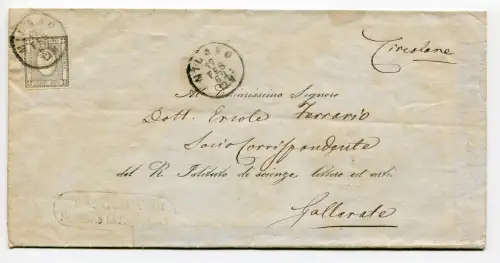 MILANO
MILANO
17
FEB
Circolare
Al Chiarissimo Signore
Dott. Ercole Ferrario
Socio Corrispendente
del R. Istituto di scienze, lettere ed arti
Gallarate